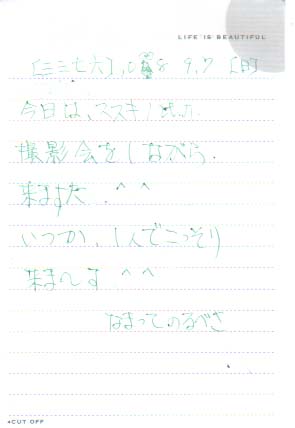 LIFE IS BEAUTIFUL
[三三七六] 、08 9.7 [日]
今日は、ススキノ
撮影会をしながら、
来ました。^ ^
いつか、1人でこっそり
来まーす ^ ^
なまってのるべさ
◂CUT OFF